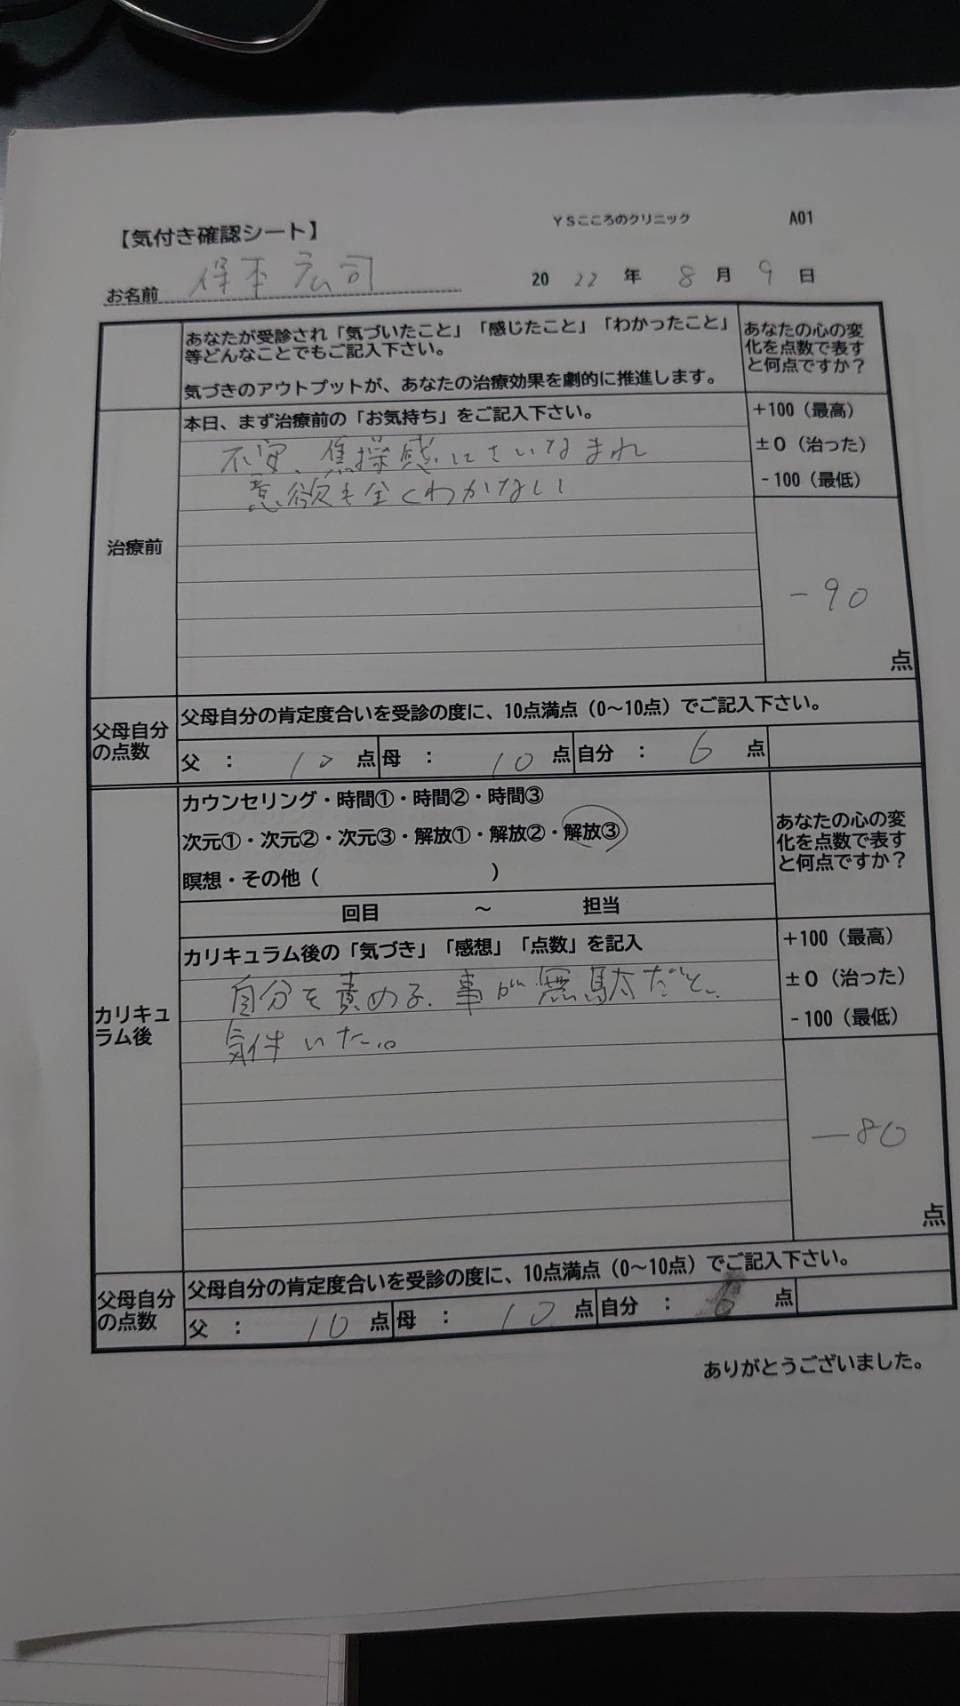 YSこころのクリニック A01
【気付き確認シート】
お名前 保本宏司 2022年8月9日
あなたが受診され「気づいたこと」「感じたこと」「わかったこと」
等どんなことでもご記入下さい。
気づきのアウトプットが、あなたの治療効果を劇的に推進します。
あなたの心の変
化を点数で表す
と何点ですか？
治療前
本日、まず治療前の「お気持ち」をご記入下さい。
不安、焦操感にさいなまれ
意欲も全くわかない
+100（最高）
±0（治った）
-100（最低）
-90
点
父母自分
の点数
父母自分の肯定度合いを受診の度に、10点満点（0〜10点）でご記入下さい。
父 ： 10 点 母 ： 10 点 自分 ： 6 点
カリキュ
ラム後
カウンセリング・時間①・時間②・時間③
次元①・次元②・次元③・解放①・解放②・解放③
瞑想・その他（ ）
回目 〜 担当
あなたの心の変
化を点数で表す
と何点ですか？
カリキュラム後の「気づき」「感想」「点数」を記入
自分を責める、事が無駄だと、
気付いた。
+100（最高）
±0（治った）
-100（最低）
-80
点
父母自分
の点数
父母自分の肯定度合いを受診の度に、10点満点（0〜10点）でご記入下さい。
父 ： 10 点 母 ： 10 点 自分 ： 点
ありがとうございました。